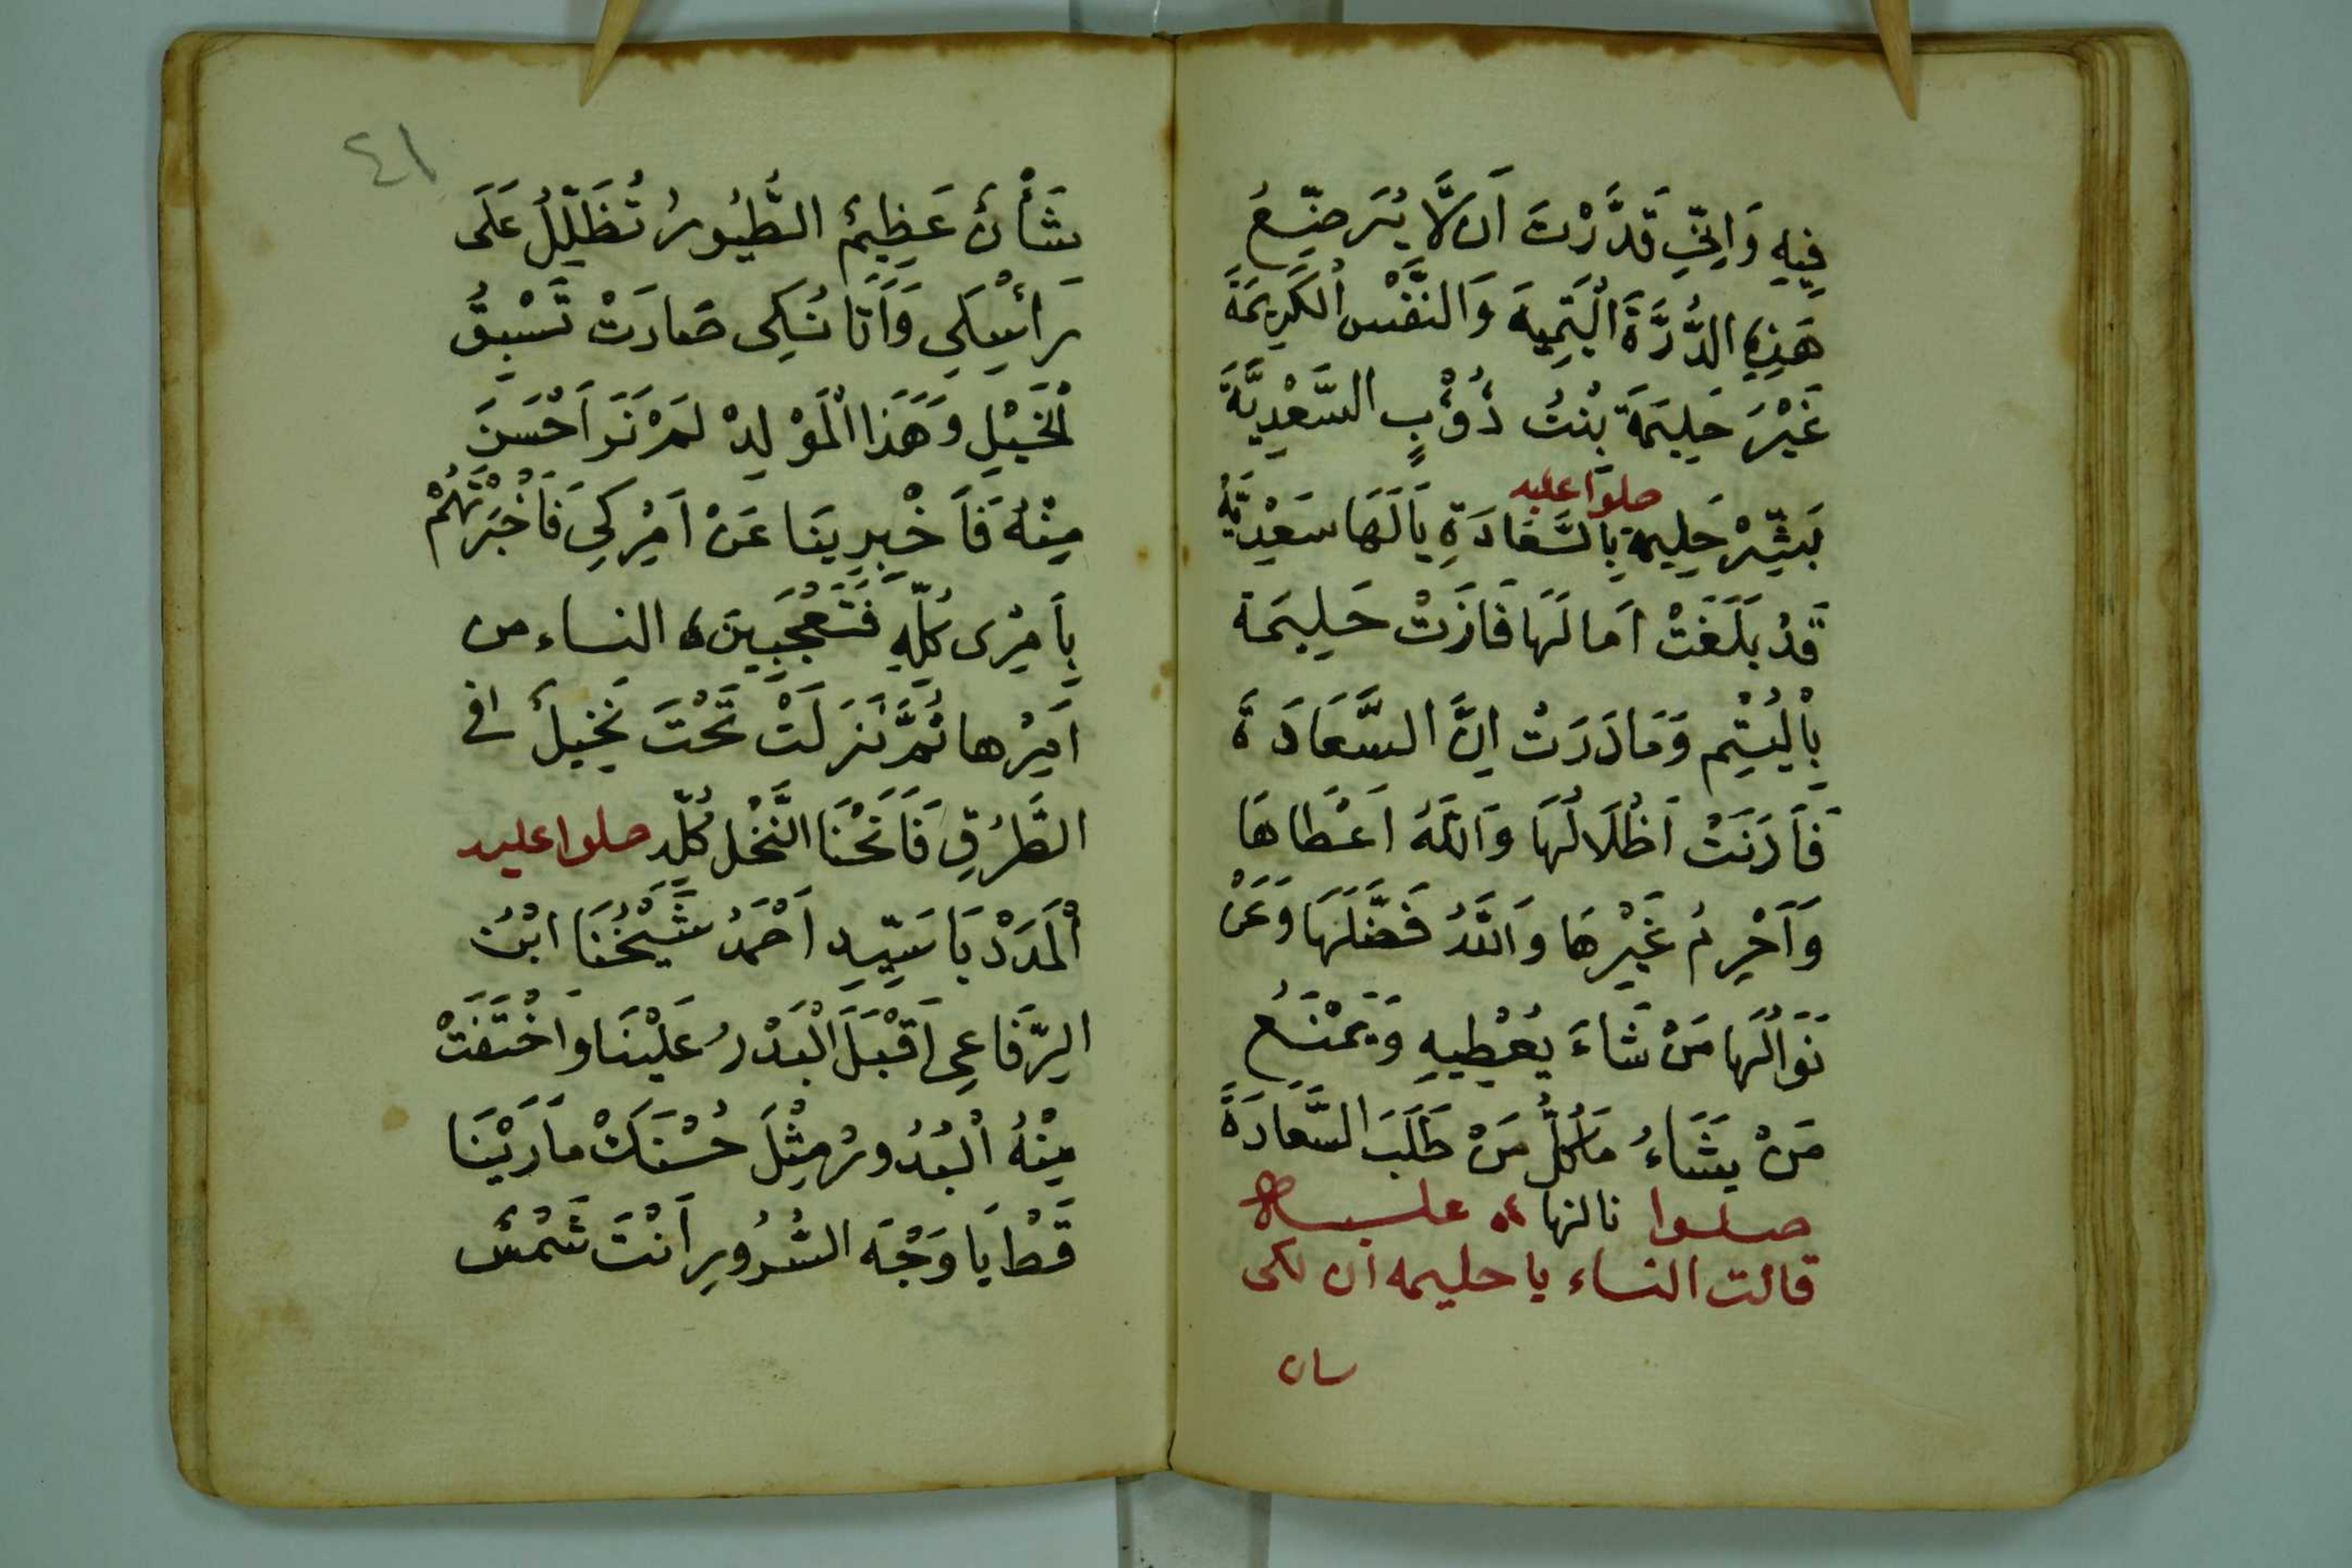 فِيهِ وَاِنِّي قَدَّرْتَ اَن لَّا يُرَضِّعُ
هَذِهِ الدُّرَّةَ الْيَتِمِيهَ وَالنَّفْسِ الْكَرِيمَةَ
غَيْرَ حَلِيمَةَ بْنتُ ذُؤْبٍ السَّعْدِيَّةَ
صلوا عليه
بَشِّرْ حَلِيمة بِالسَّعَادَةِ يَالَهَا سَعْدِيَّة
قَدْ بَلَغَتْ اَمالَهَا فَازَتْ حَلِيمَة
بِالْيُتِْم وَمَا دَرَتْ اِنَّ السَّعَادَةَ
فَاَدَنَتْ اَظْلَالُهَا وَاللهُ اَعْطَاهَا
وَاَحْرِمُ غَيْرِهَا وَاللهُ فَضَّلَهَا وَعَنْ
نَوَالُهَا مَنْ شَاءَ يُعْطِيهِ وَيَمْنَعُ
مَنْ يَشَاءُ مَا كُلُّ مَنْ طَلَبَ السَّعَادَةَ
صلوا نالنها عليه
قالت النساء يا حليمه ان لكى
سان
٤١
شَأْنٌ عَظِيمٌ الطُّيُورُ تُظَلِّلُ عَلَى
رَاْسِكِي وَاَتَانُكِى صَارَتْ تَسْبِقُ
الْخَيْلِ وَهَذَا الْمَوْلِدْ لَمْ نَرَ اَحْسَنَ
مِنْهُ فَاَخْبِرِينَا عَنْ اَمْرِكِي فَاَخْبَرْتُهُمْ
بِاَمْرِى كُلِّهِ فَتَعَجَّبِينَ النساء من
اَمْرِها ثُمَّ نَزَلَتْ تَحْتَ نَخِيلٌ فى
الطَّرُقِ فَاَنْحَنَا النَّخْل كُلِّه صلوا عليه
اَلْمَدَدْ يَا سَيِّدِ اَحْمَدُ شَيْخُنَا ابْنُ
الرِّفَاعِى اَقْبَلَ الْبَدْرُ عَلَيْنَا وَاخْتَفَتْ
مِنْهُ الْبُدُورُ مِثْلَ حُسْنَكْ مَا رَيْنَا
قَطْ يَا وَجْهَ السُّرُورِ اَنْتَ شَمْسٌ